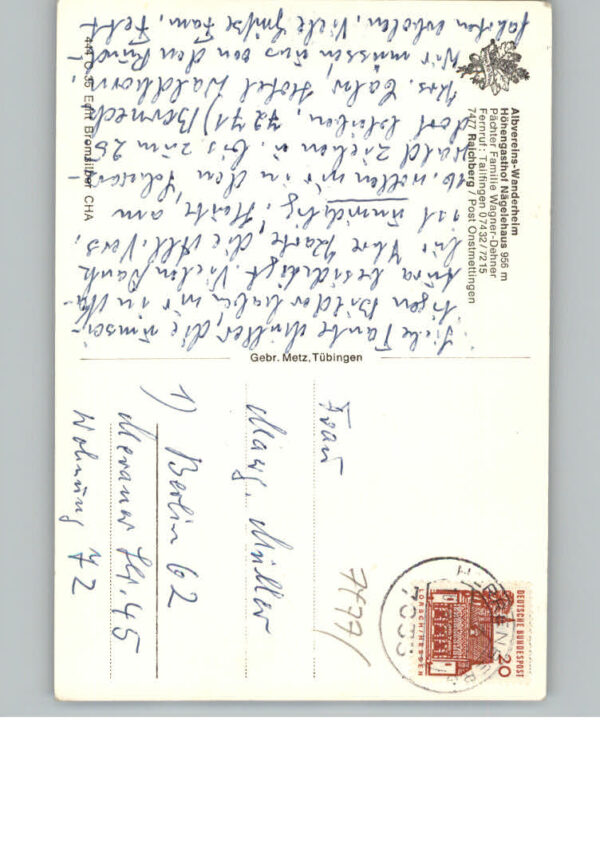 Albvereins-Wanderheim
Höhengasthof Nägelehaus 956 m
Pächter Familie Wagner-Dehner
Fernruf: Tailfingen 07432/7215
7477 Raichberg / Post Onstmettingen
Liebe Tante Müller, die einsei-
tigen Bilder haben wir in
besichtigt. Vielen Dank
für Ihre Karte, die
ist Heute, am
wollen wir in den
wald ziehen u. bis zum 25.
dort bleiben, 7271) Berneck
Krs. Calw, Hotel Waldhorn
Wir müssen uns von den Rund-
fahrten erholen. Viele Grüße Fam.
444 C 35 Echt Bromsilber CHA
Gebr. Metz, Tübingen
Frau
Marg. Müller
1) Berlin 62
Meraner Str. 45
Wohnung 72
7477/
DEUTSCHE BUNDESPOST
20
LORSCH/HESSEN